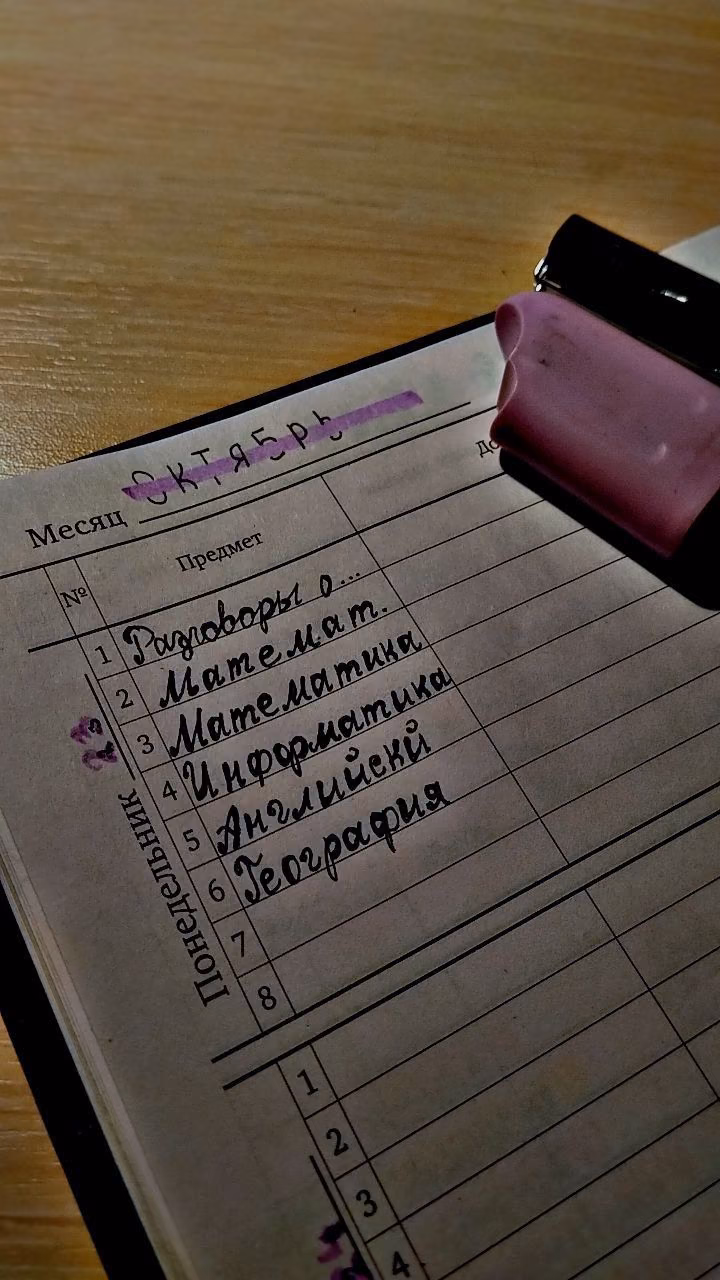 Октябрь
Месяц
№ Предмет
Понедельник
1 Разговоры о...
2 Математ.
3 Математика
4 Информатика
5 Английскй
6 География
7
8
1
2
3
4